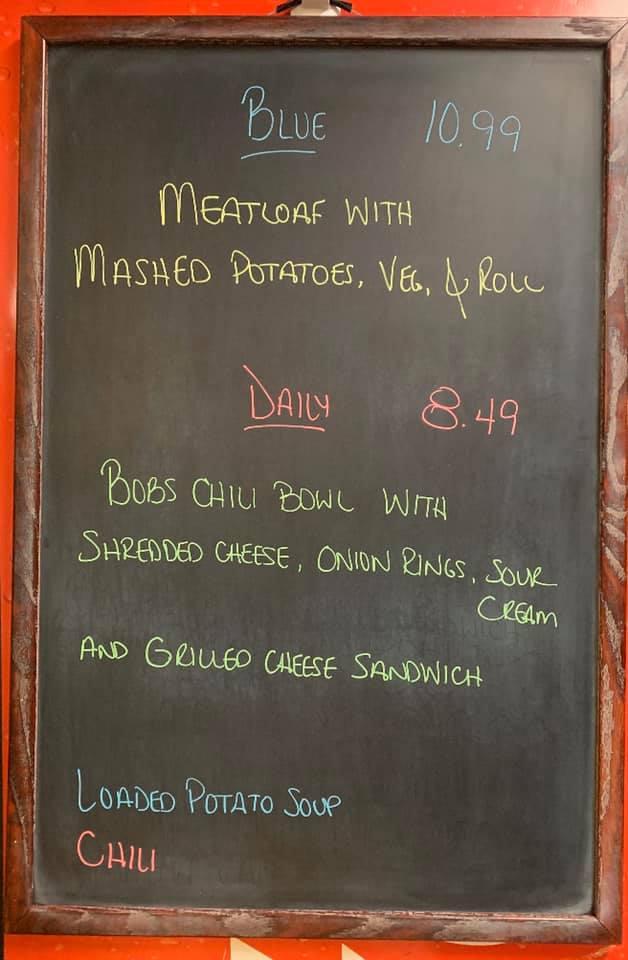 BLUE 10.99
MEATLOAF WITH
MASHED POTATOES, VEG, & ROLL
DAILY 8.49
BOBS CHILI BOWL WITH
SHREDDED CHEESE, ONION RINGS, SOUR
CREAM
AND GRILLED CHEESE SANDWICH
LOADED POTATO SOUP
CHILI